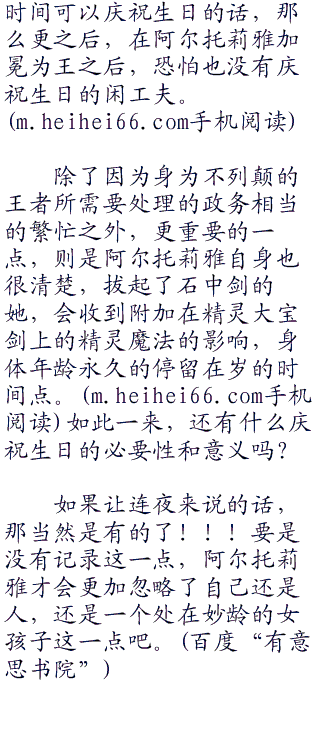 时间可以庆祝生日的话，那
么更之后，在阿尔托莉雅加
冕为王之后，恐怕也没有庆
祝生日的闲工夫。
(m.heihei66.com手机阅读)
除了因为身为不列颠的
王者所需要处理的政务相当
的繁忙之外，更重要的一
点，则是阿尔托莉雅自身也
很清楚，拔起了石中剑的
她，会收到附加在精灵大宝
剑上的精灵魔法的影响，身
体年龄永久的停留在岁的时
间点。(m.heihei66.com手机
阅读)如此一来，还有什么庆
祝生日的必要性和意义吗？
如果让连夜来说的话，
那当然是有的了！！！要是
没有记录这一点，阿尔托莉
雅才会更加忽略了自己还是
人，还是一个处在妙龄的女
孩子这一点吧。(百度“有意
思书院”)